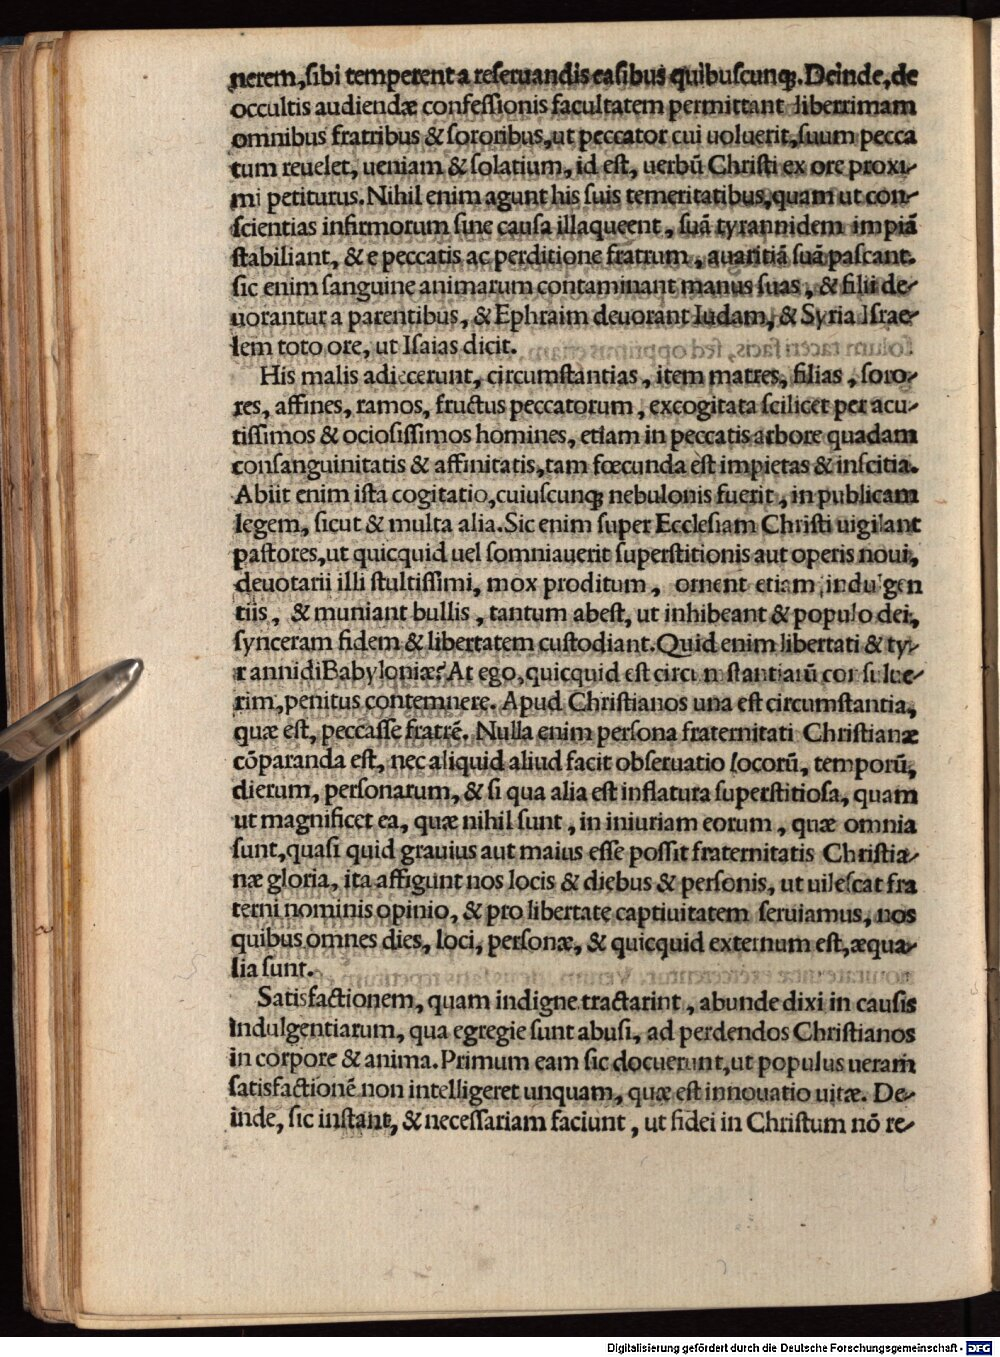 nerem, ſibi temperent a reſeruandis caſibus quibuſcunq;. Deinde, de
occultis audiendæ confeſſionis facultatem permittant liberrimam
omnibus fratribus & ſororibus, ut peccator cui uoluerit, ſuum pecca
tum reuelet, ueniam & ſolatium, id eſt, uerbū Chriſti ex ore proxi-
mi petiturus. Nihil enim agunt his ſuis temeritatibus, quam ut con-
ſcientias infirmorum ſine cauſa illaqueent, ſuā tyrannidem impiā
ſtabiliant, & e peccatis ac perditione fratrum, auaritiā ſuā paſcant.
ſic enim ſanguine animarum contaminant manus ſuas, & filii de-
uorantur a parentibus, & Ephraim deuorant Iudam, & Syria Iſrae-
lem toto ore, ut Iſaias dicit.
His malis adiecerunt, circumſtantias, item matres, filias, ſoro-
res, affines, ramos, fructus peccatorum, excogitata ſcilicet per acu-
tiſſimos & ocioſiſſimos homines, etiam in peccatis arbore quadam
conſanguinitatis & affinitatis, tam fœcunda eſt impietas & inſcitia.
Abiit enim iſta cogitatio, cuiuſcunq; nebulonis fuerit, in publicam
legem, ſicut & multa alia. Sic enim ſuper Eccleſiam Chriſti uigilant
paſtores, ut quicquid uel ſomniauerit ſuperſtitionis aut operis noui,
deuotarii illi ſtultiſſimi, mox proditum, ornent etiam indulgen
tiis, & muniant bullis, tantum abeſt, ut inhibeant & populo dei,
ſynceram fidem & libertatem cuſtodiant. Quid enim libertati & ty-
rannidi Babyloniæ? At ego, quicquid eſt circumſtantiarū conſulue-
rim, penitus contemnere. Apud Chriſtianos una eſt circumſtantia,
quæ eſt, peccaſſe fratrē. Nulla enim perſona fraternitati Chriſtianæ
cōparanda eſt, nec aliquid aliud facit obſeruatio locorū, temporū,
dierum, perſonarum, & ſi qua alia eſt inflatura ſuperſtitioſa, quam
ut magnificet ea, quæ nihil ſunt, in iniuriam eorum, quæ omnia
ſunt, quaſi quid grauius aut maius eſſe poſſit fraternitatis Chriſtia-
næ gloria, ita affigunt nos locis & diebus & perſonis, ut uileſcat fra
terni nominis opinio, & pro libertate captiuitatem ſeruiamus, nos
quibus omnes dies, loci, perſonæ, & quicquid externum eſt, æqua-
lia ſunt.
Satisfactionem, quam indigne tractarint, abunde dixi in cauſis
indulgentiarum, qua egregie ſunt abuſi, ad perdendos Chriſtianos
in corpore & anima. Primum eam ſic docuerunt, ut populus ueram
ſatisfactionē non intelligeret unquam, quæ eſt innouatio uitæ. De-
inde, ſic inſtant, & neceſſariam faciunt, ut fidei in Chriſtum nō re-
Digitalisierung gefördert durch die Deutsche Forschungsgemeinschaft - DFG